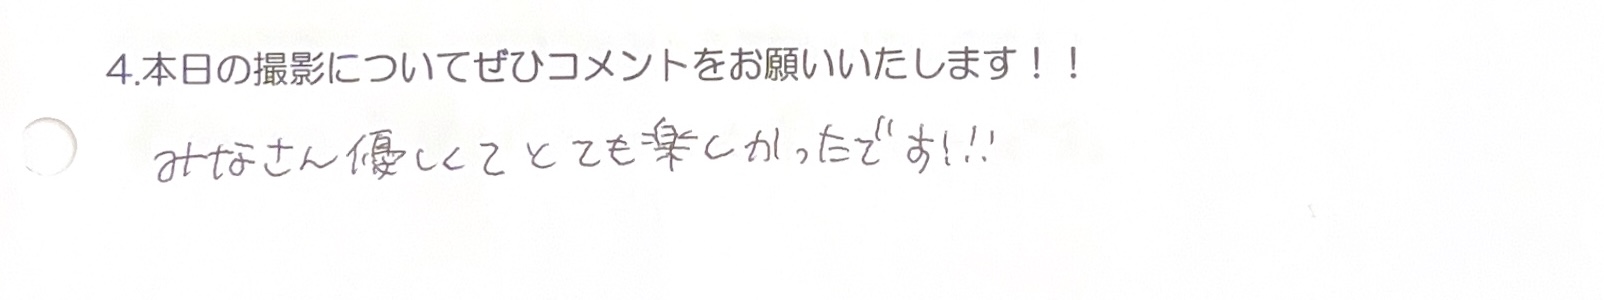 4.本日の撮影についてぜひコメントをお願いいたします！！
みなさん優しくてとても楽しかったです!!!